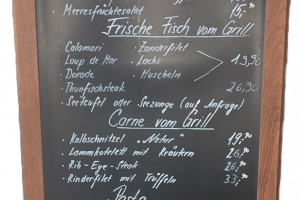 · Meeresfrüchtesalat 15,-
Frische Fisch vom Grill
· Calamari · Zanderfilet
· Loup de Mer · Lachs 19,90
· Dorade · Muscheln
· Thunfischsteak 26,90
· Seeteufel oder Seezunge (auf Anfrage)
Carne vom Grill
· Kalbschnitzel "Natur" 19,90
· Lammkotelett mit Kräutern 26,90
· Rib-Eye-Steak 26,90
· Rinderfilet mit Trüffeln 33,90
Pasta